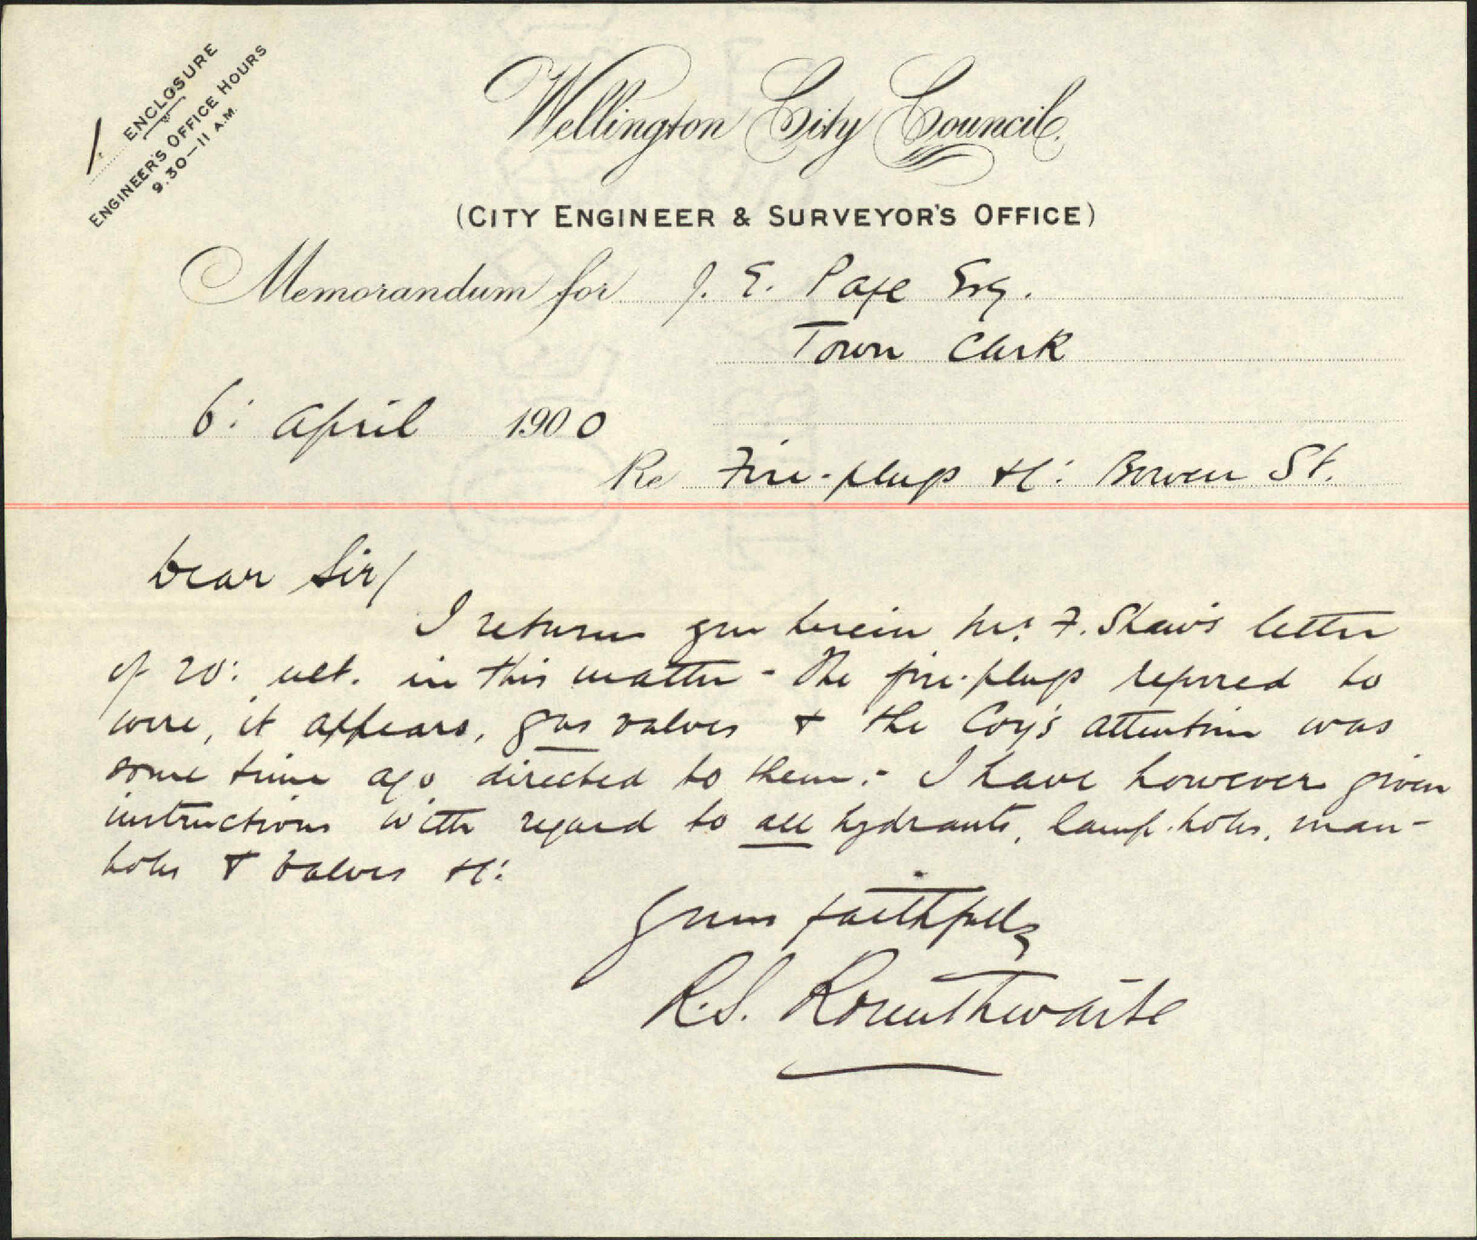 1 ENCLOSURE
ENGINEER'S OFFICE HOURS
9.30—11 A.M.
Wellington City Council.
(CITY ENGINEER & SURVEYOR'S OFFICE)
Memorandum for J. E. Page Esq.
Town Clerk
6: April 1900
Re Fire-plugs &c: Bowen St.
Dear Sir/
I return you herein Mr. F. Shaw's letter
of 20: ult. in this matter - The fire-plugs referred to
were, it appears, gas valves & the Coy's attention was
some time ago directed to them:- I have however given
instructions with regard to all hydrants, lamp-holes, man-
holes & valves &c:
Yours faithfully
R.S. Rounthwaite